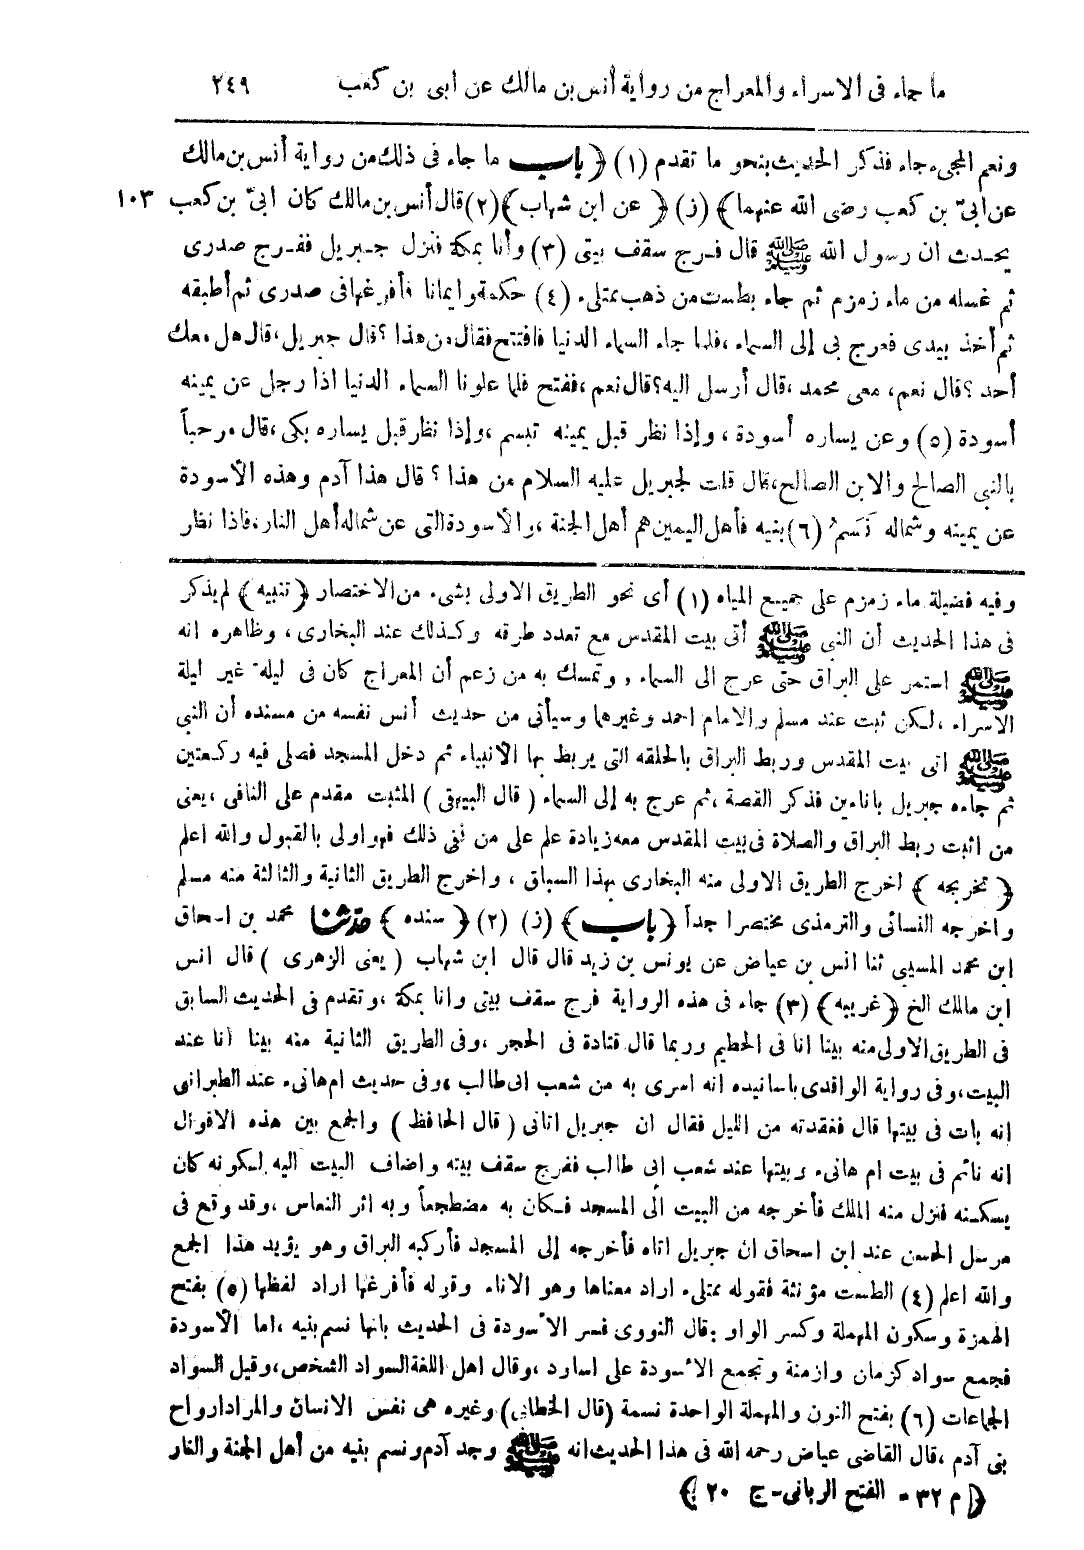 ما جاء فى الاسراء والمعراج من رواية أنس بن مالك عن ابى بن كعب ٢٤٩
ونعم المجىء جاء فذكر الحديث بنحو ما تقدم (١) ﴿باب ما جاء فى ذلك من رواية أنس بن مالك
عن ابىّ بن كعب رضى الله عنهما﴾ (ز) ﴿عن ابن شهاب﴾ (٢) قال أنس بن مالك كان ابىّ بن كعب ١٠٣
يحدث ان رسول الله ﷺ قال فرج سقف بيتى (٣) وأنا بمكة فنزل جبريل ففرج صدرى
ثم غسله من ماء زمزم ثم جاء بطست من ذهب ممتلىء (٤) حكمة وايمانا فأفرغها فى صدرى ثم أطبقه
ثم أخذ بيدى فعرج بى إلى السماء، فلما جاء السماء الدنيا فافتتح فقال من هذا؟ قال جبريل، قال هل معك
أحد؟ قال نعم، معى محمد، قال أرسل اليه؟ قال نعم، ففتح فلما علونا السماء الدنيا اذا رجل عن يمينه
أسودة (٥) وعن يساره أسودة، وإذا نظر قبل يمينه تبسم، وإذا نظر قبل يساره بكى، قال مرحباً
بالنبى الصالح والابن الصالح، قال قلت لجبريل عليه السلام من هذا؟ قال هذا آدم وهذه الأسودة
عن يمينه وشماله نَسَمُ (٦) بنيه فأهل اليمين هم أهل الجنة، والأسودة التى عن شماله أهل النار، فاذا نظر
وفيه فضيلة ماء زمزم على جميع المياه (١) أى نحو الطريق الاولى بشىء من الاختصار ﴿تنبيه﴾ لم يذكر
فى هذا الحديث أن النبى ﷺ أتى بيت المقدس مع تعدد طرقه وكذلك عند البخارى، وظاهره انه
ﷺ استمر على البراق حتى عرج الى السماء، وتمسك به من زعم أن المعراج كان فى ليلة غير ليلة
الاسراء، لكن ثبت عند مسلم والامام احمد وغيرهما وسيأتى من حديث أنس نفسه من مسنده أن النبى
ﷺ اتى بيت المقدس وربط البراق بالحلقه التى يربط بها الأنبياء ثم دخل المسجد فصلى فيه ركعتين
ثم جاءه جبريل باناءين فذكر القصة، ثم عرج به إلى السماء (قال البيهقى) المثبت مقدم على النافى، يعنى
من اثبت ربط البراق والصلاة فى بيت المقدس معه زيادة علم على من نفى ذلك فهو اولى بالقبول والله اعلم
﴿تخريجه﴾ اخرج الطريق الاولى منه البخارى بهذا السياق، واخرج الطريق الثانية والثالثة منه مسلم
واخرجه النسائى والترمذى مختصرا جداً ﴿باب﴾ (ز) (٢) ﴿سنده﴾ حدثنا محمد بن اسحاق
ابن محمد المسيبى ثنا انس بن عياض عن يونس بن زيد قال قال ابن شهاب (يعنى الزهرى) قال انس
ابن مالك الخ ﴿غريبه﴾ (٣) جاء فى هذه الرواية فرج سقف بيتى وانا بمكة، وتقدم فى الحديث السابق
فى الطريق الاولى منه بينا انا فى الحطيم وربما قال قتادة فى الحجر، وفى الطريق الثانية منه بينا أنا عند
البيت، وفى رواية الواقدى باسانيده انه اسرى به من شعب ابى طالب، وفى حديث ام هانىء عند الطبرانى
انه بات فى بيتها قال ففقدته من الليل فقال ان جبريل اتانى (قال الحافظ) والجمع بين هذه الاقوال
انه نائم فى بيت ام هانىء وبيتها عند شعب ابى طالب ففرج سقف بيته واضاف البيت اليه لكونه كان
يسكنه فنزل منه الملك فأخرجه من البيت الى المسجد فكان به مضطجعاً وبه اثر النعاس، وقد وقع فى
مرسل الحسن عند ابن اسحاق ان جبريل اتاه فأخرجه إلى المسجد فأركبه البراق وهو يؤيد هذا الجمع
والله اعلم (٤) الطست مؤنثة فقوله ممتلىء اراد معناها وهو الاناء وقوله فأفرغها اراد لفظها (٥) بفتح
الهمزة وسكون المهملة وكسر الواو، قال النووى فسر الأسودة فى الحديث بانها نسم بنيه، اما الأسودة
فجمع سواد كزمان وازمنة وتجمع الأسودة على اساود، وقال اهل اللغة السواد الشخص، وقيل السواد
الجماعات (٦) بفتح النون والمهملة الواحدة نسمة (قال الخطابى) وغيره هى نفس الانسان والمراد ارواح
بنى آدم، قال القاضى عياض رحمه الله فى هذا الحديث انه ﷺ وجد آدم ونسم بنيه من أهل الجنة والنار
﴿م ٣٢ - الفتح الربانى - ج ٢٠﴾